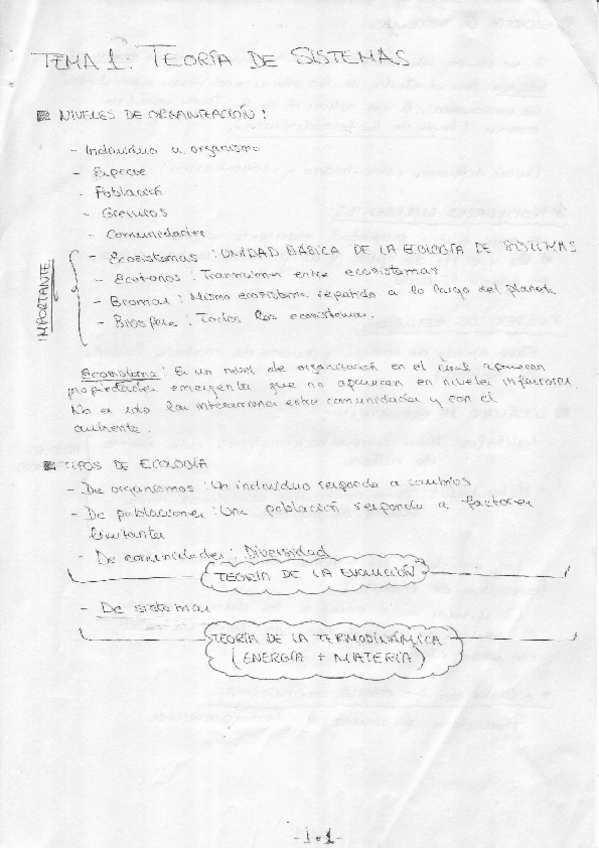 TEMA 1: TEORÍA DE SISTEMAS
NIVELES DE ORGANIZACIÓN:
- Individuo u organismo
- Especie
- Población
- Gremios
- Comunidades
IMPORTANTE
- Ecosistemas: UNIDAD BÁSICA DE LA ECOLOGÍA DE SISTEMAS
- Ecotonos: Transiciones entre ecosistemas
- Biomas: Mismo ecosistema repetido a lo largo del planeta
- Biosfera: Todos los ecosistemas.
Ecosistema: Es un nivel de organización en el cual aparecen
propiedades emergentes que no aparecen en niveles inferiores.
No es solo las interacciones entre comunidades y con el
ambiente.
TIPOS DE ECOLOGÍA
- De organismos: Un individuo responde a cambios
- De poblaciones: Una población responde a factores
limitantes
- De comunidades: Diversidad
TEORÍA DE LA EVOLUCIÓN
- De sistemas
TEORÍA DE LA TERMODINÁMICA
(ENERGÍA + MATERIA)
-1.1-